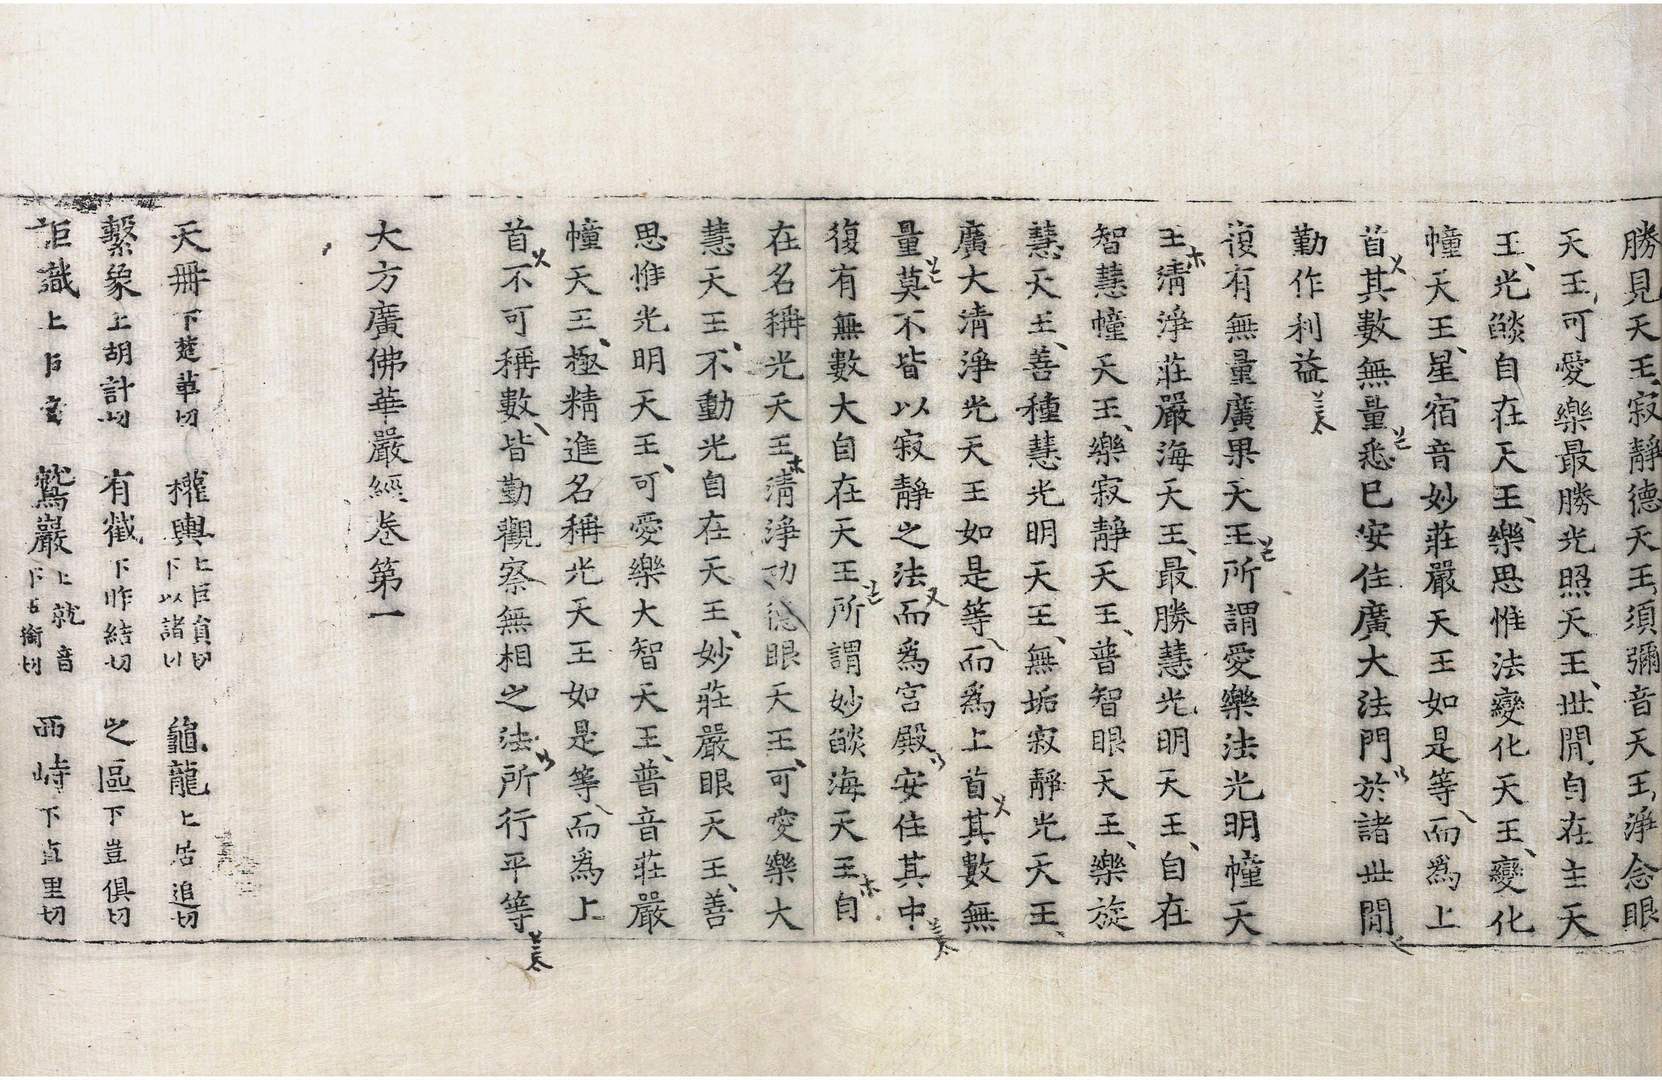 勝見天王寂靜德天王須彌音天王淨念眼
天王可愛樂最勝光照天王世閒自在主天
王光燄自在天王樂思惟法變化天王變化
幢天王星宿音妙莊嚴天王如是等而爲上
首其數無量悉已安住廣大法門於諸世閒
勤作利益
復有無量廣果天王所謂愛樂法光明幢天
王淸淨莊嚴海天王最勝慧光明天王自在
智慧幢天王樂寂靜天王普智眼天王樂旋
慧天王善種慧光明天王無垢寂靜光天王
廣大淸淨光天王如是等而爲上首其數無
量莫不皆以寂靜之法而爲宮殿安住其中
復有無數大自在天王所謂妙燄海天王自
在名稱光天王淸淨功德眼天王可愛樂大
慧天王不動光自在天王妙莊嚴眼天王善
思惟光明天王可愛樂大智天王普音莊嚴
幢天王極精進名稱光天王如是等而爲上
首不可稱數皆勤觀察無相之法所行平等
大方廣佛華嚴經卷第一
天冊下楚革切 權輿上巨員切下以諸切 龜龍上居追切
繫象上胡計切 有截下昨結切 之區下豈俱切
詎識上巨音 鷲巖上就音下五銜切 西峙下直里切